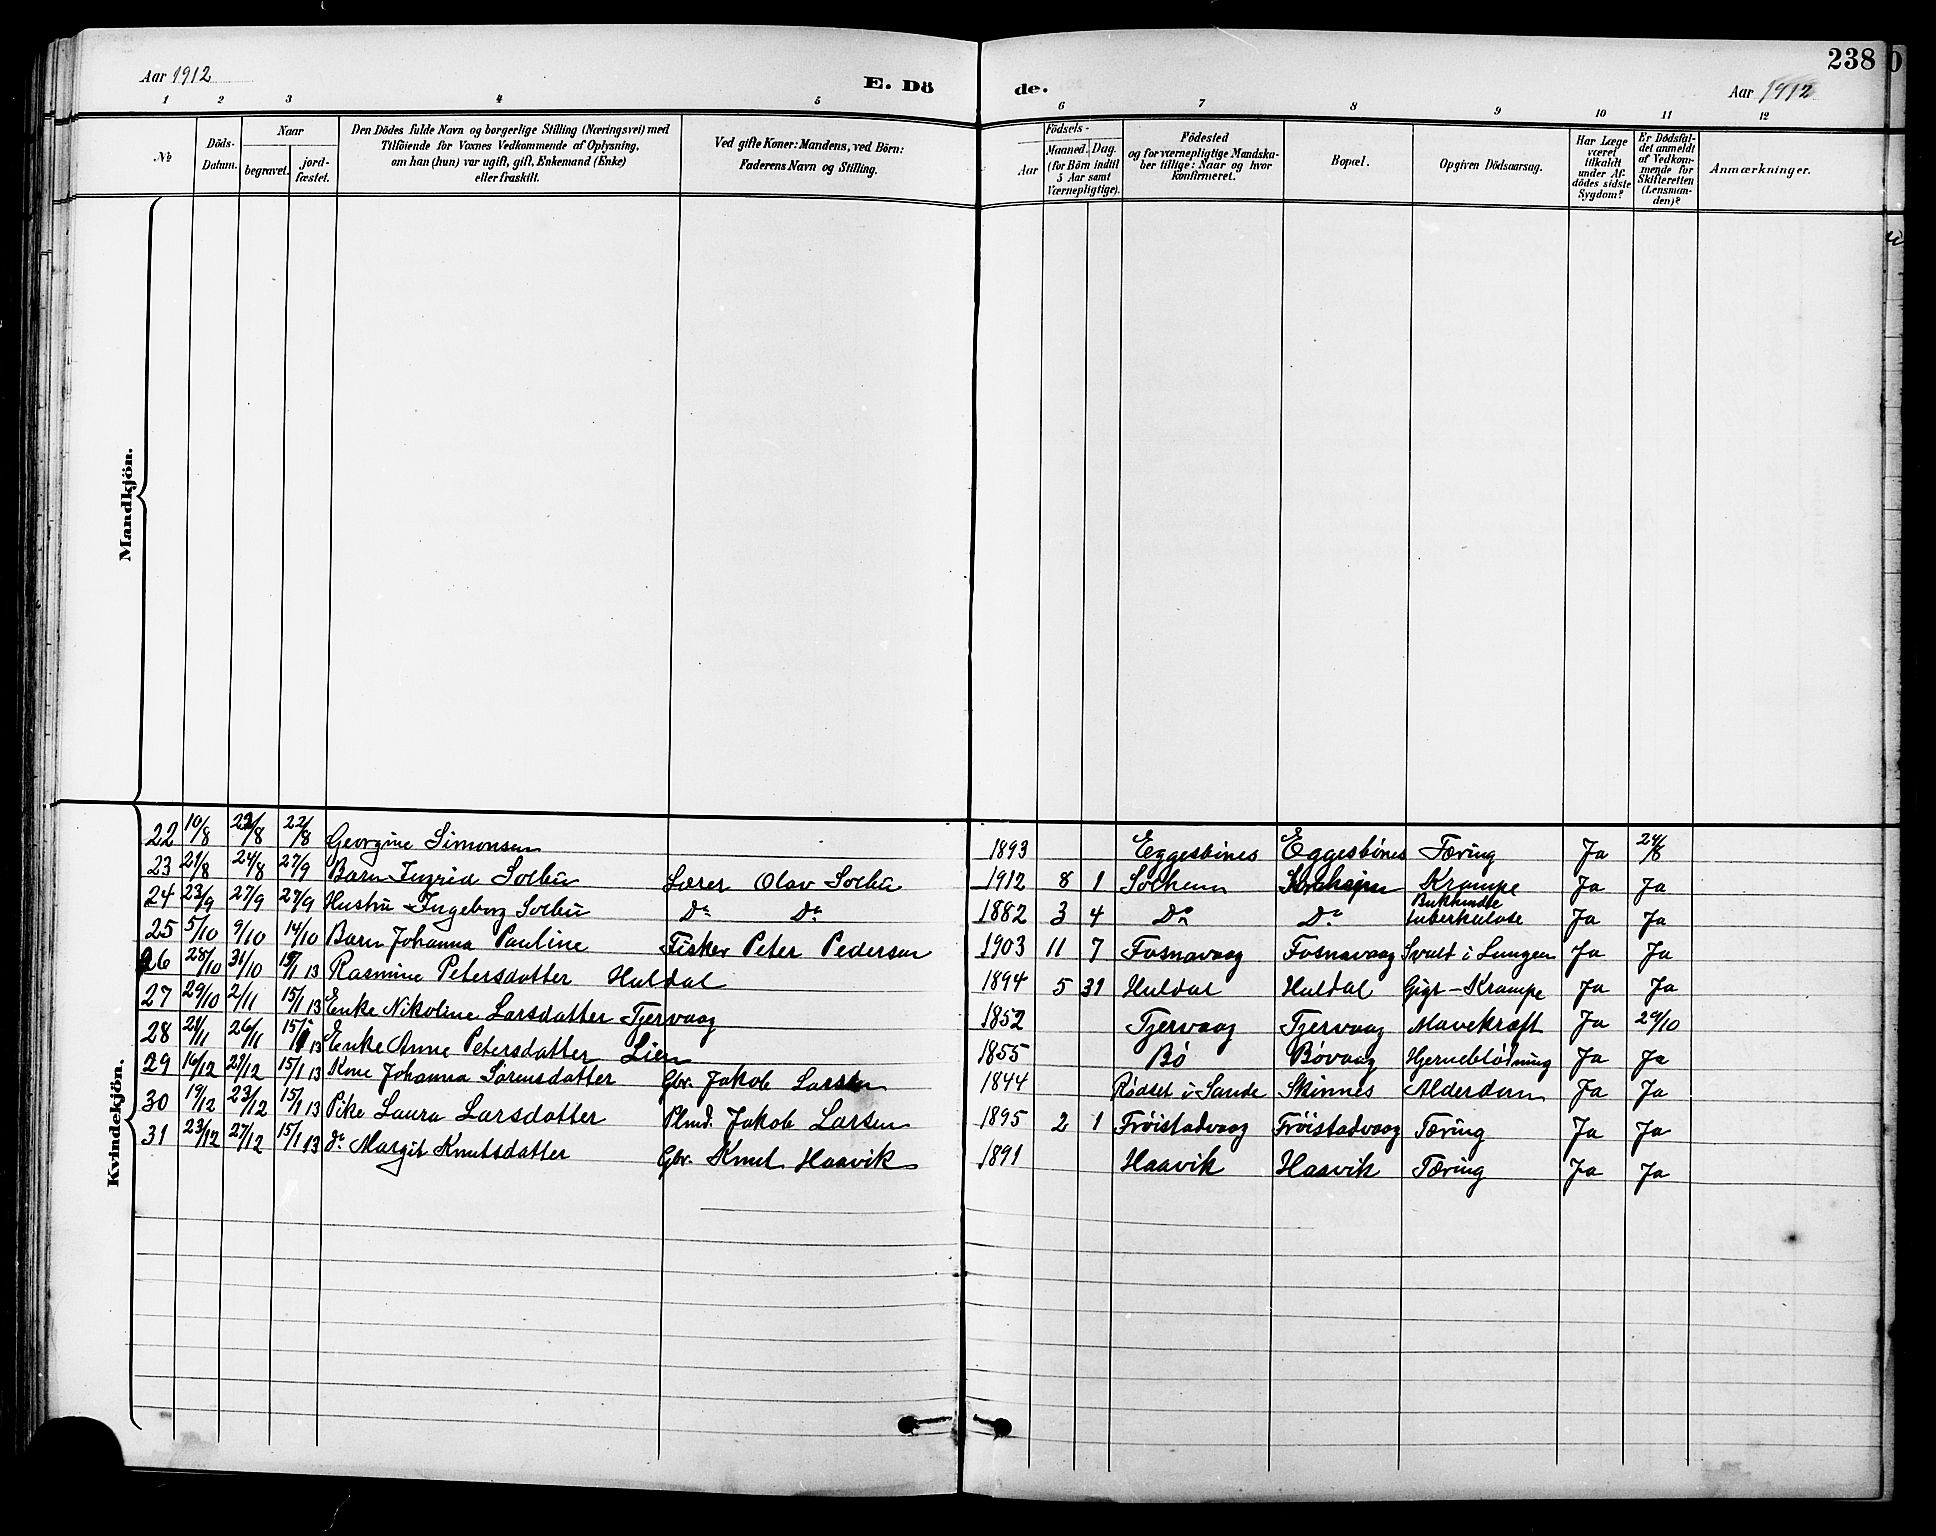 238
Aar 1912 E. Dö de. Aar 1912
1 2 3 4 5 6 7 8 9 10 11 12
№
Döds-Datum.
Naar
begravet.
jord-fæstet.
Den Dödes fulde Navn og borgerlige Stilling (Næringsvei) med
Tilföiende for Voxnes Vedkommende af Oplysning,
om han (hun) var ugift, gift, Enkemand (Enke)
eller fraskilt.
Ved gifte Koner: Mandens, ved Börn:
Faderens Navn og Stilling.
Födsels-
Aar
Maaned. Dag.
(for Börn indtil
5 Aar samt
Værnepligtige).
Födested
og for værnepligtige Mandska-
ber tillige: Naar og hvor
Konfirmeret.
Bopæl.
Opgiven Dödsaarsag.
Har Læge
været
tilkaldt
under Af-
dödes sidste
Sygdom?
Er Dödsfal-
det anmeldt
af Vedkom-
mende for
Skifteretten
(Lensman-
den)?
Anmærkninger.
Mandkjön.
Kvindekjön.
22 10/8 22/8 22/8 Georgine Simonsen 1893 Eggesbönes Eggesbönes Tæring Ja 24/8
23 21/8 24/8 27/9 Barn Ingrid Solbu Lærer Olav Solbu 1912 8 1 Solheim Krampe Ja Ja
24 23/9 27/9 27/9 Hustru Ingeborg Solbu Do Do 1882 3 4 Do Do Bukhindetuberkulose Ja Ja
25 5/10 9/10 14/10 Barn Johanna Pauline Fisker Peter Pedersen 1903 11 7 Fosnavaag Fosnavaag Svulst i Lungen Ja Ja
26 28/10 31/10 15/1 13 Rasmine Petersdatter Huldal 1894 5 31 Huldal Huldal Gigt-Krampe Ja Ja
27 29/10 2/11 15/1 13 Enke Nikoline Larsdatter Tjervaag 1852 Tjervaag Tjervaag Mavekræft Ja 29/10
28 21/11 26/11 15/1 13 Enke Anne Petersdatter Lien 1855 Bö Bövaag Hjerneblödning Ja Ja
29 16/12 21/12 15/1 13 Kone Johanna Sörensdatter Gbr. Jakob Larsen 1844 Rödset i Sande Skinnes Alderdom Ja Ja
30 19/12 23/12 15/1 13 Pike Laura Larsdatter Plmd. Jakob Larsen 1895 2 1 Fröistadvaag Fröistadvaag Tæring Ja Ja
31 23/12 27/12 15/1 13 do Margit Knutsdatter Gbr. Knut Haavik 1891 Haavik Haavik Tæring Ja Ja